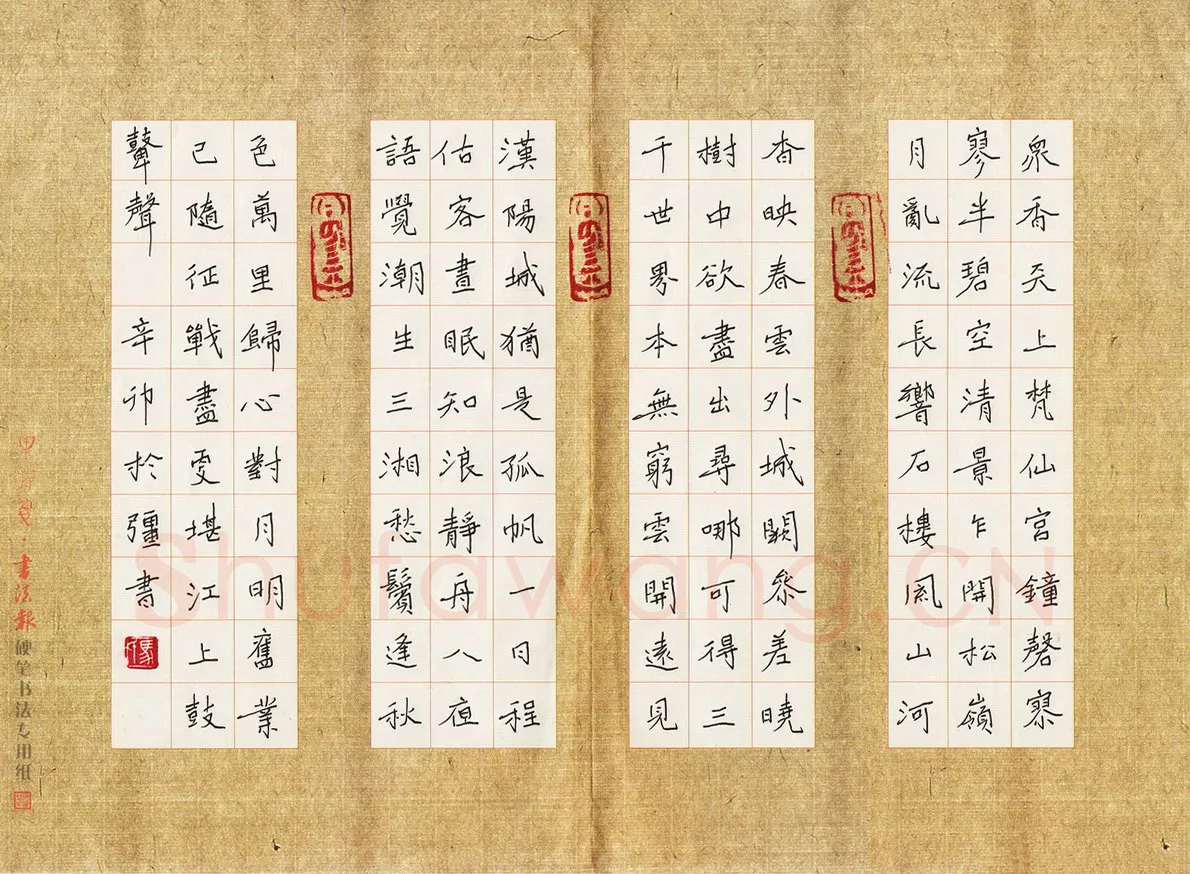 眾香天上梵仙宮鐘磬寥
寥半碧空清景乍開松嶺
月亂流長響石樓風山河
杳映春雲外城闕參差曉
樹中欲盡出尋哪可得三
千世界本無窮雲開遠見
漢陽城猶是孤帆一日程
估客晝眠知浪靜舟八夜
語覺潮生三湘愁鬢逢秋
色萬里歸心對月明舊業
已隨征戰盡更堪江上鼓
鼙聲 辛卯於彊書
書法報硬笔书法专用纸
Shufawang.CN